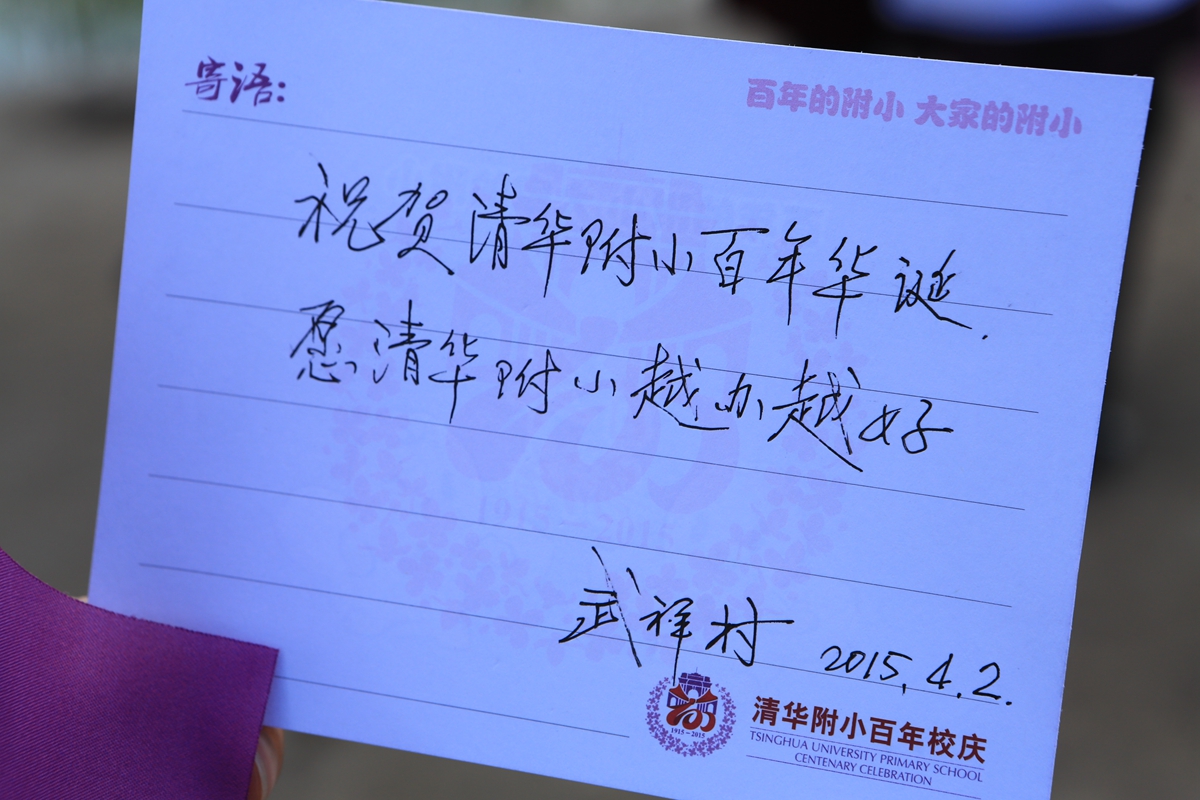 寄语:
百年的附小 大家的附小
祝贺清华附小百年华诞.
愿清华附小越办越好
1915-2015
武祥村 2015.4.2.
1915-2015
清华附小百年校庆
TSINGHUA UNIVERSITY PRIMARY SCHOOL
CENTENARY CELEBRATION